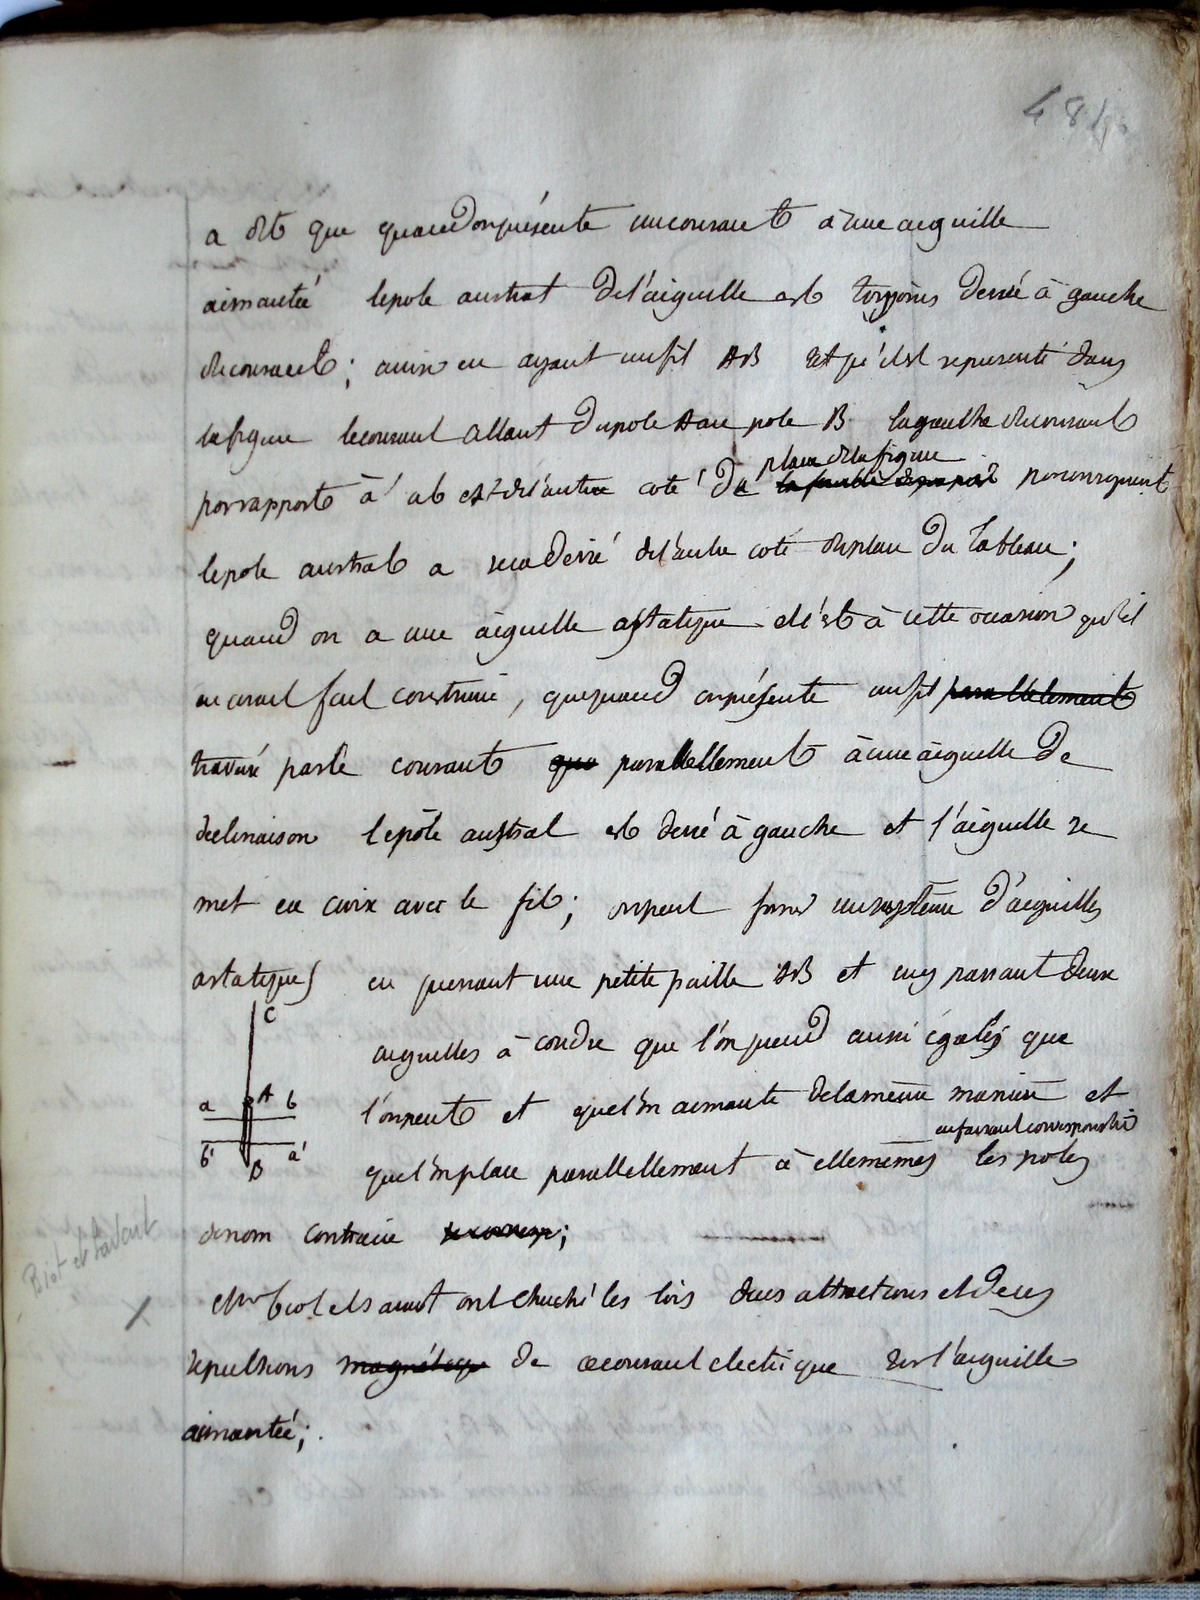 484
a dit que quand on présente un courant à une aiguille
aimantée le pole austral de l'aiguille est toujours devié à gauche
du courant; ainsi en ayant un fil AB tel qu'il est representé dans
la figure le courant allant du pole A au pole B la gauche du courant
par rapport à ab est de l'autre coté du plan de la figure la feuille de papier par consequent
le pole austral a sera devié de l'autre coté du plan du tableau;
quand on a une aiguille astatique et c'est à cette occasion qu'il
en avait fait construire, que quand on présente un fil parallelement
traversé par le courant que parallellement à une aiguille de
declinaison le pôle austral est devié à gauche et l'aiguille se
met en croix avec le fil; on peut former un système d'aiguilles
astatiques en prenant une petite paille AB et en y passant deux
aiguilles à coudre que l'on prend aussi égales que
l'on peut et que l'on aimante de la même manière et
que l'on place parallellement à elles mêmes en faisant correspondre les poles
de nom contraire
C
a A b
b' B a'
Biot et Savart
Mrs biot et savart ont cherché les lois des attractions et des
repulsions magnétique de ce courant electrique sur l'aiguille
aimantée;